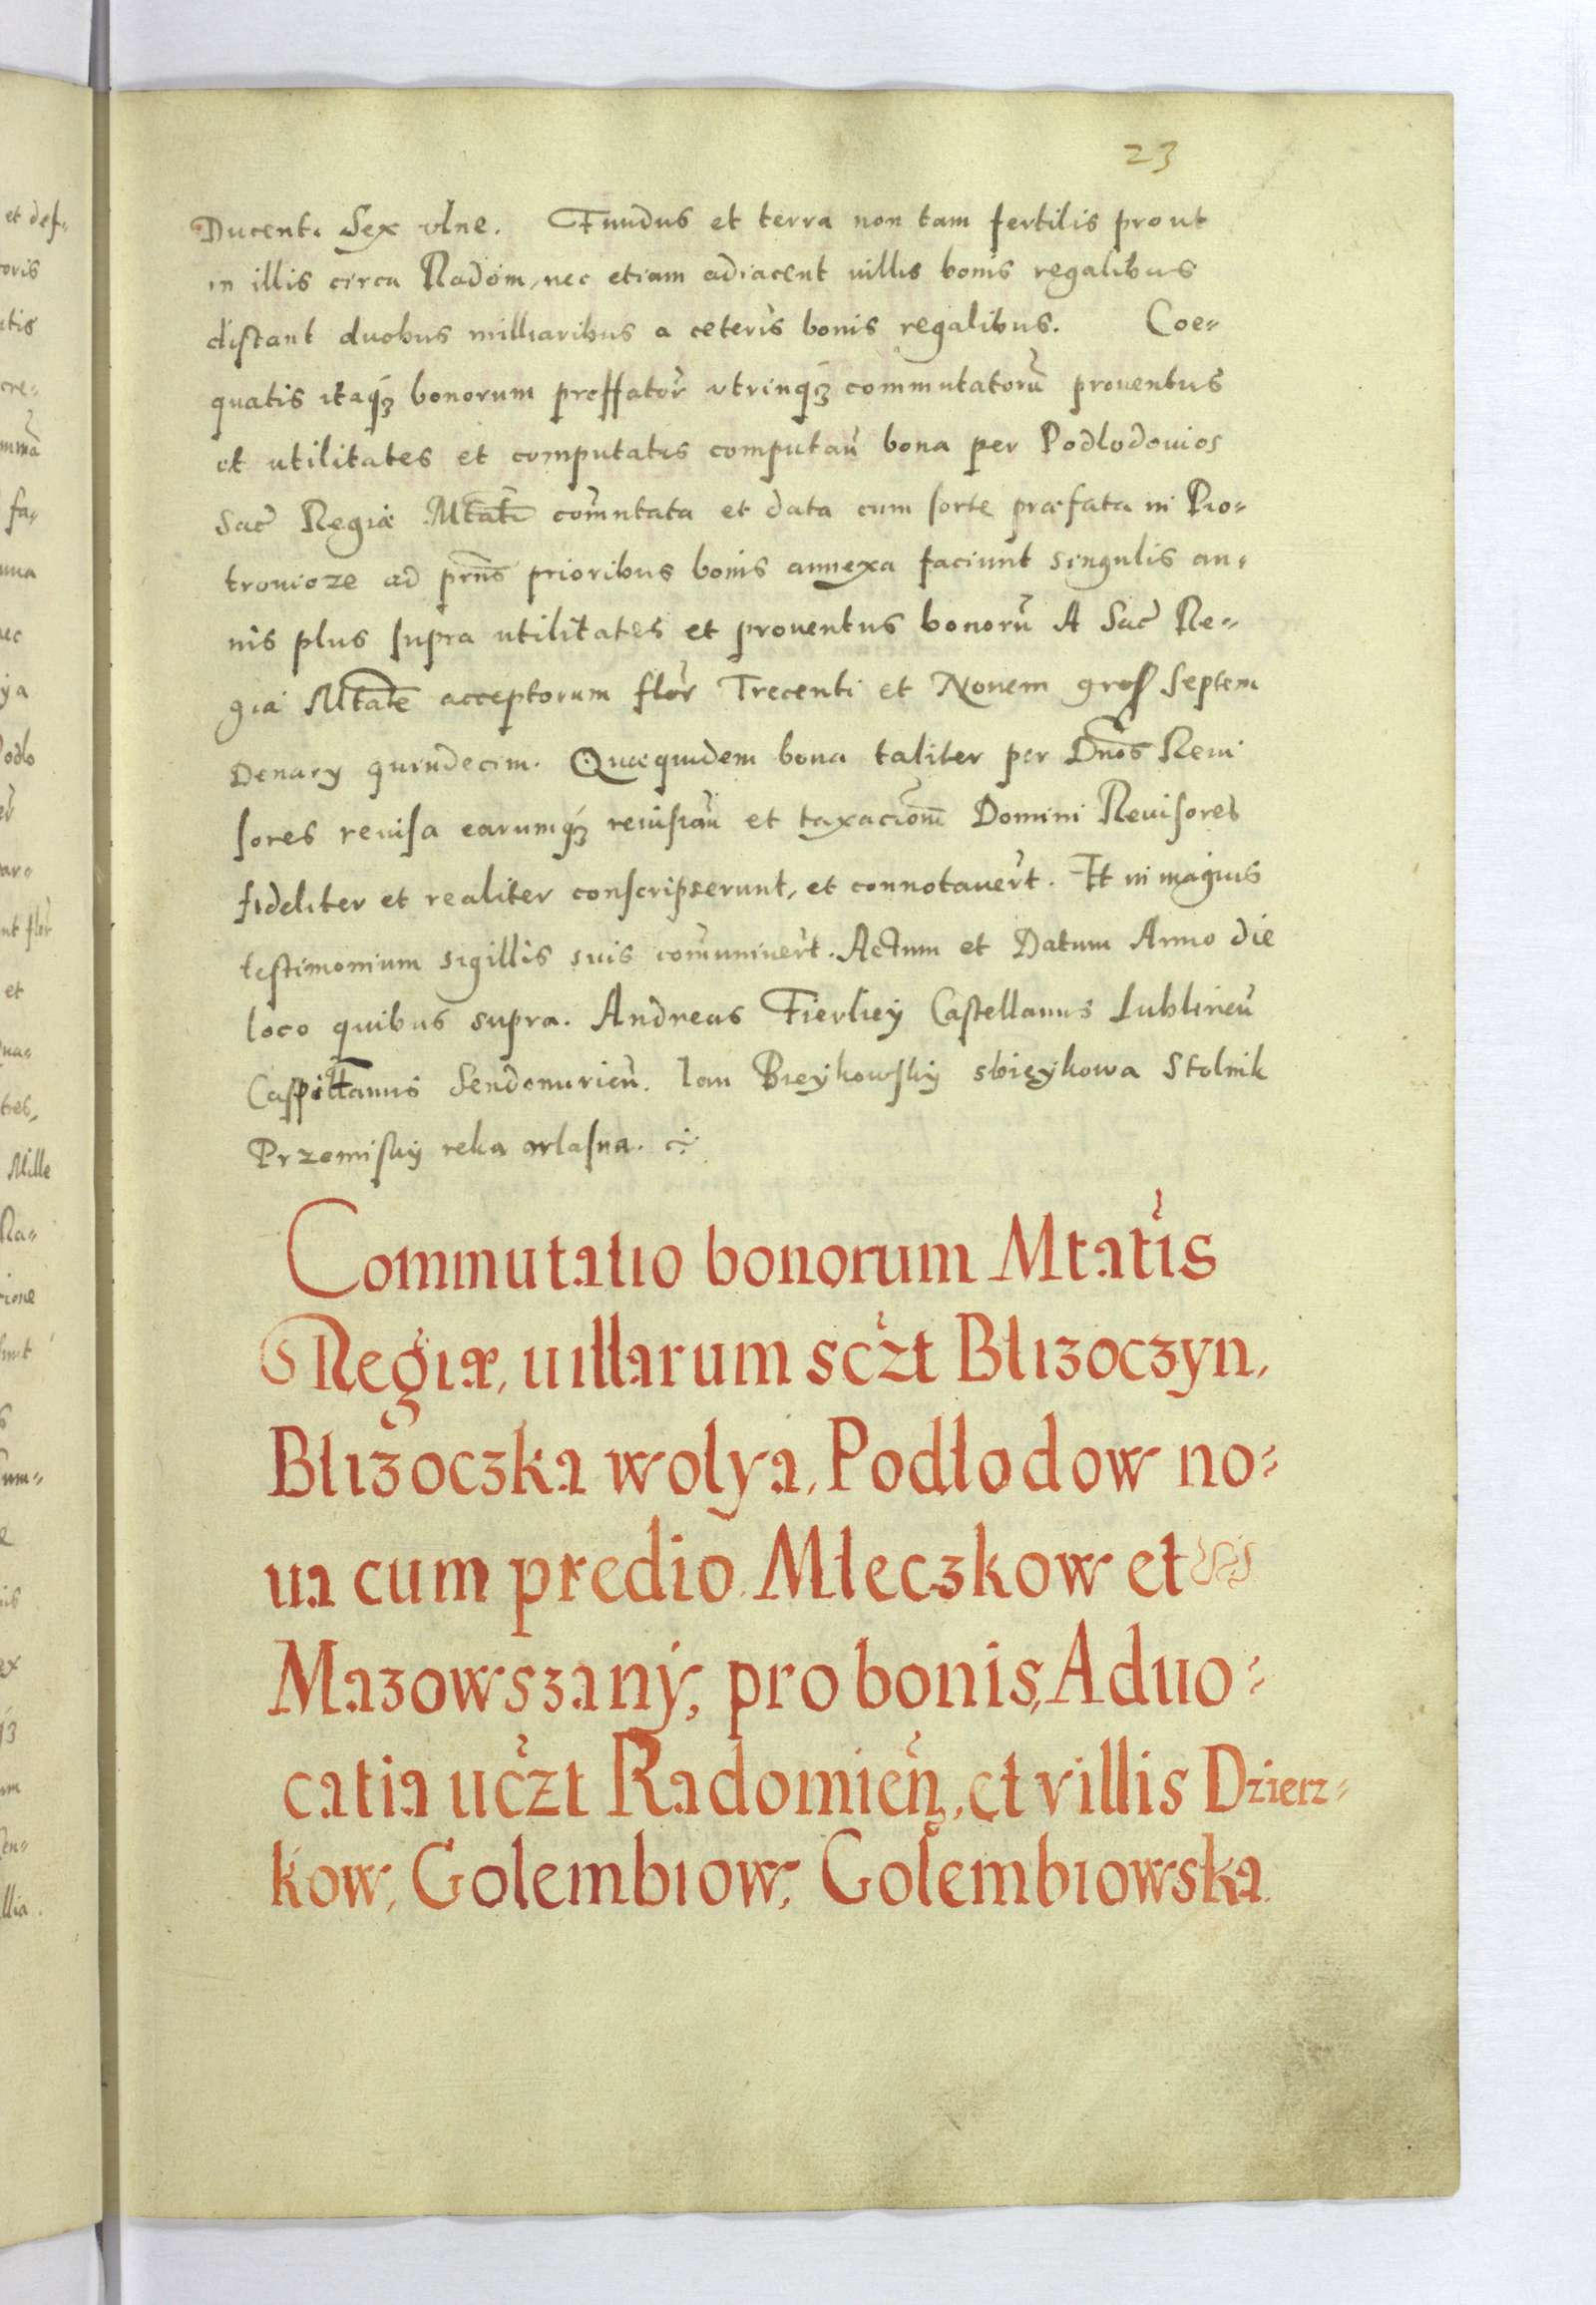 23
Ducenti Sex vlne. Fundus et terra non tam fertilis prout
in illis circa Radom, nec etiam adiacent villis bonis regalibus
distant duobus milliaribus a ceteris bonis regalibus. Coe-
quatis itaqʒ bonorum preffator̃ vtrinqʒ commutatorũ prouentus
et utilitates et computatis computañ bona per Podlodouios
Sac̃ Regiæ Mtati com̃utata et data cum sorte præfata in Pio-
trouicze ad prñs prioribus bonis annexa faciunt singulis an-
nis plus supra utilitates et prouentus bonorũ A Sac̃ Re-
gia Mtate acceptorum flor̃ Trecenti et Nonem gros Septem
Denary quindecim. Quæquidem bona taliter per Dños Reui
sores reuisa earumqʒ reuisiañ et taxaciom̃ Domini Reuisores
fideliter et realiter conscripserunt, et connotauer̃t. Et in magius
testimonium sigillis suis com̃uniuer̃t. Actum et Datum Anno die
loco quibus supra. Andreas Fierliey Castellanus Lublineñ
Cappittanus Sendomirieñ. Ian Bieykowsky sbieykowa Stolnik
Przemisky reka wlasna.
Commutatio bonorum Mtatis
Regiæ, uillarum scz̃t Blizoczyn,
Blizoczka wolya, Podlodow no-
ua cum predio Mleczkow et
Mazowszaný, pro bonis, Aduo-
catia ucz̃t Radomień, et villis Dzierz-
kow, Golembiow, Golembiowska